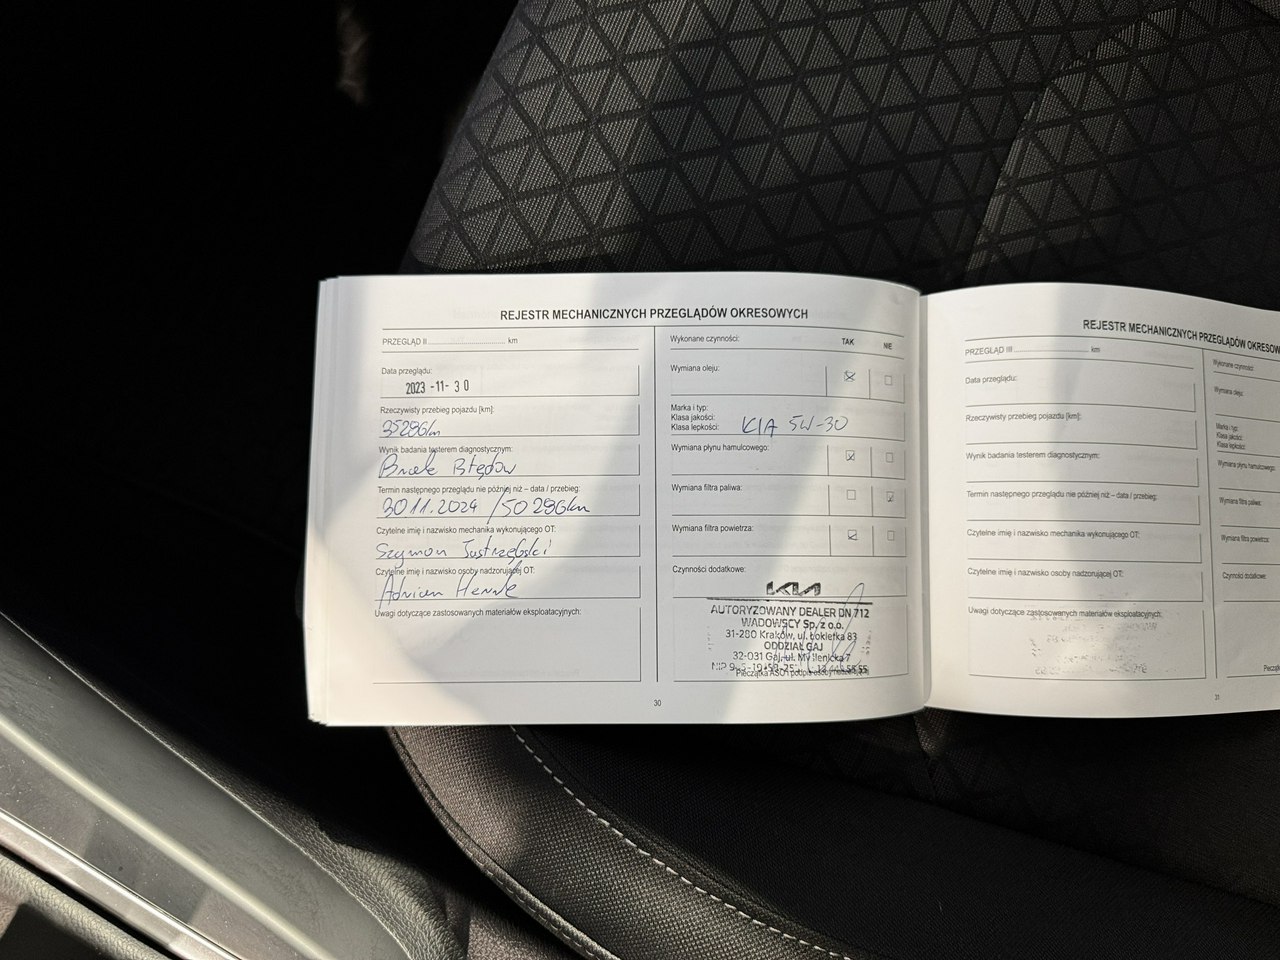 REJESTR MECHANICZNYCH PRZEGLĄDÓW OKRESOWYCH
PRZEGLĄD II ........................ km
Data przeglądu:
2023-11-30
Rzeczywisty przebieg pojazdu [km]:
35286km
Wynik badania testerem diagnostycznym:
Brak Błędów
Termin następnego przeglądu nie później niż – data / przebieg:
30.11.2024 / 50286km
Czytelne imię i nazwisko mechanika wykonującego OT:
Szymon Jastrzębski
Czytelne imię i nazwisko osoby nadzorującej OT:
Adrian
Uwagi dotyczące zastosowanych materiałów eksploatacyjnych:
Wykonane czynności: TAK NIE
Wymiana oleju:
Marka i typ:
Klasa jakości:
Klasa lepkości: KIA 5W-30
Wymiana płynu hamulcowego:
Wymiana filtra paliwa:
Wymiana filtra powietrza:
Czynności dodatkowe:
KIA
AUTORYZOWANY DEALER DN 712
WADOWSCY Sp. z o.o.
31-280 Kraków, ul. Łokietka 83
ODDZIAŁ GAJ
32-031 Gaj, ul. Myślenicka 7
NIP
Pieczątka ASO i podpis osoby nadzorującej
30
REJESTR MECHANICZNYCH PRZEGLĄDÓW OKRESOW
PRZEGLĄD III ........................ km
Data przeglądu:
Rzeczywisty przebieg pojazdu [km]:
Wynik badania testerem diagnostycznym:
Termin następnego przeglądu nie później niż – data / przebieg:
Czytelne imię i nazwisko mechanika wykonującego OT:
Czytelne imię i nazwisko osoby nadzorującej OT:
Uwagi dotyczące zastosowanych materiałów eksploatacyjnych:
Wykonane czynności:
Wymiana oleju:
Marka i typ:
Klasa jakości:
Klasa lepkości:
Wymiana płynu hamulcowego:
Wymiana filtra paliwa:
Wymiana filtra powietrza:
Czynności dodatkowe:
31